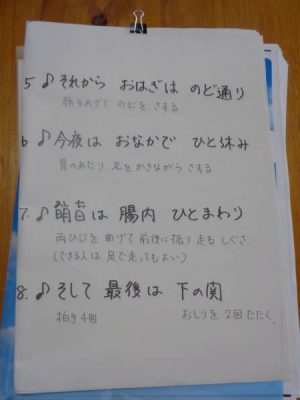 5 ♪それから おはぎは のど通り
顔をあげて のどを さする
6 ♪今夜は おなかで ひと休み
胃のあたり 丸をかきながら さする
7. ♪翌日は 腸内 ひとまわり
両ひじを 曲げて 前後に振り 走る しぐさ
(できる人は 足で走ってもよい)
8. ♪そして 最後は 下の関
拍手4回 おしりを 2回 たたく。